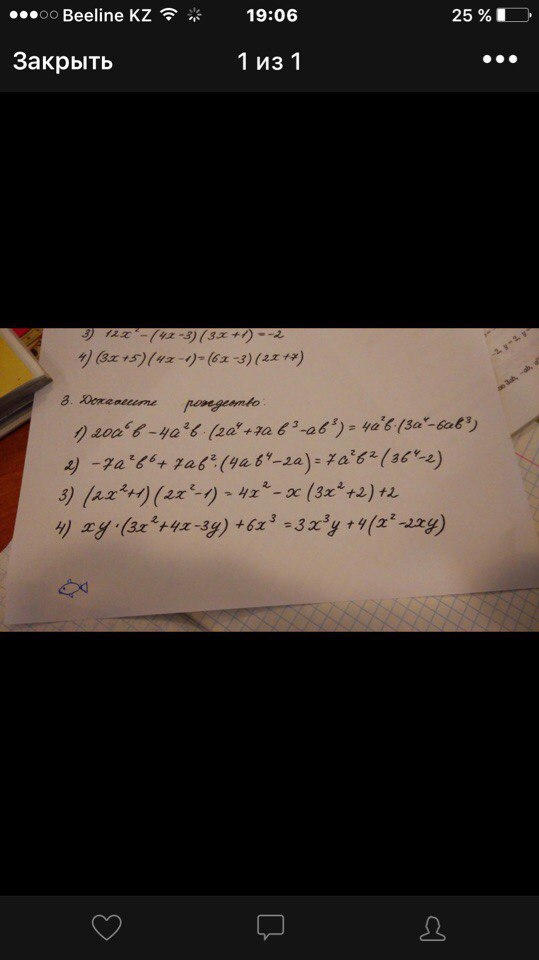 Beeline KZ 19:06 25 %
Закрыть 1 из 1
3) 12x² - (4x-3)(3x+1) = -2
4) (3x+5)(4x-1) = (6x-3)(2x+7)
3. Докажите тождество:
1) 20a⁶b - 4a²b·(2a⁴+7ab³-ab³) = 4a²b·(3a⁴-6ab³)
2) -7a²b⁶ + 7ab²·(4ab⁴-2a) = 7a²b²(3b⁴-2)
3) (2x²+1)(2x²-1) = 4x² - x(3x²+2)+2
4) xy·(3x²+4x-3y)+6x³ = 3x³y+4(x²-2xy)